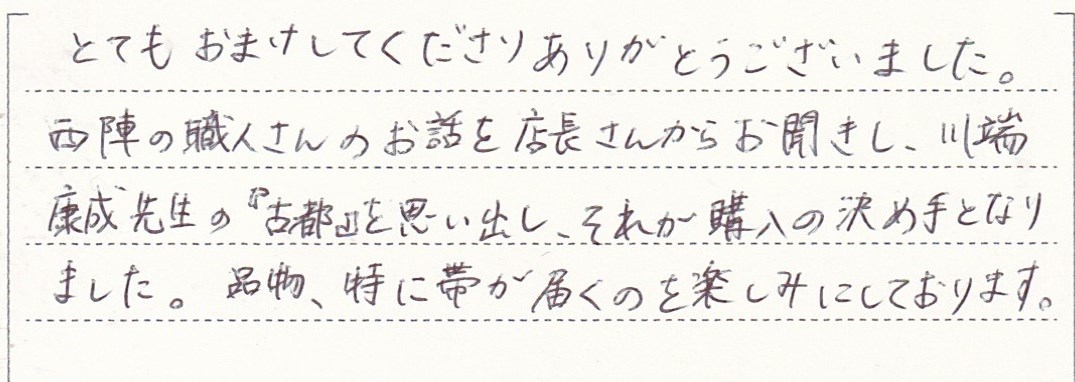 とても おまけしてくださりありがとうございました。
西陣の職人さんのお話を店長さんからお聞きし、川端
康成先生の『古都』を思い出し、それが購入の決め手となり
ました。品物、特に帯が届くのを楽しみにしております。